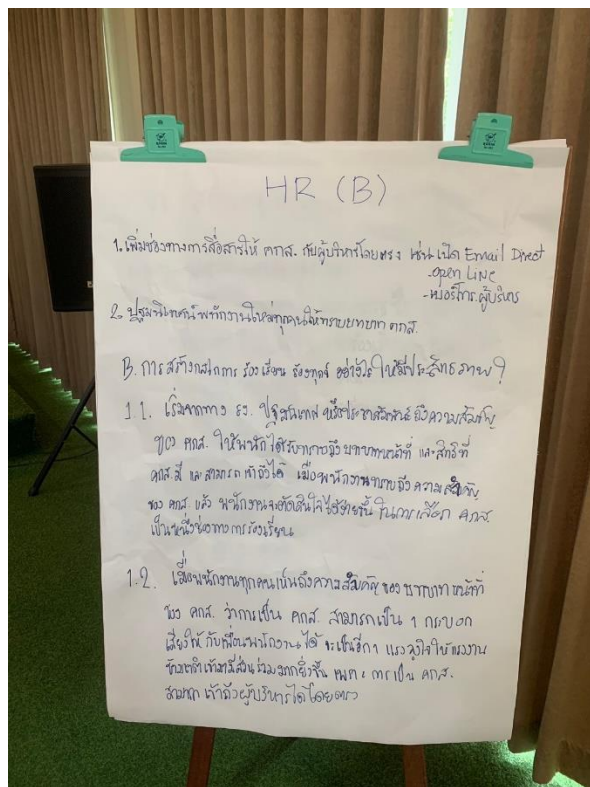 HR (B)
1. เพิ่มช่องทางการสื่อสารให้ คกส. กับผู้บริหารโดยตรง เช่น เปิด Email Direct
- open Line
- เบอร์โทร ผู้บริหาร
2. ปฐมนิเทศน์พนักงานใหม่ทุกคนให้ทราบบทบาท คกส.
B. การสร้างกลไกการ ร้องเรียน ร้องทุกข์ อย่างไร ให้มีประสิทธิภาพ?
1.1. เริ่มจากทาง รง. ปฐมนิเทศ หรือประชาสัมพันธ์ ถึงความสำคัญ
ของ คกส. ให้พนักได้รับทราบถึง บทบาทหน้าที่ และสิทธิที่
คกส. มี และ สามารถ เข้าถึงได้ เมื่อพนักงานทราบถึง ความสำคัญ
ของ คกส. แล้ว พนักงานจะตัดสินใจได้ง่ายขึ้น ในการเลือก คกส.
เป็นหนึ่งช่องทางการร้องเรียน
1.2. เมื่อพนักงานทุกคนเห็นถึงความสำคัญ ของ บทบาท หน้าที่
ของ คกส. ว่าการเป็น คกส. สามารถเป็น 1 กระบอก
เสียงให้ กับเพื่อนพนักงาน ได้ จะเป็นอีก 1 แรงจูงใจให้แรงงาน
ข้ามชาติ เข้ามามีส่วนร่วมมากยิ่งขึ้น เพราะ การเป็น คกส.
สามารถ เข้าถึงผู้บริหารได้โดยตรง